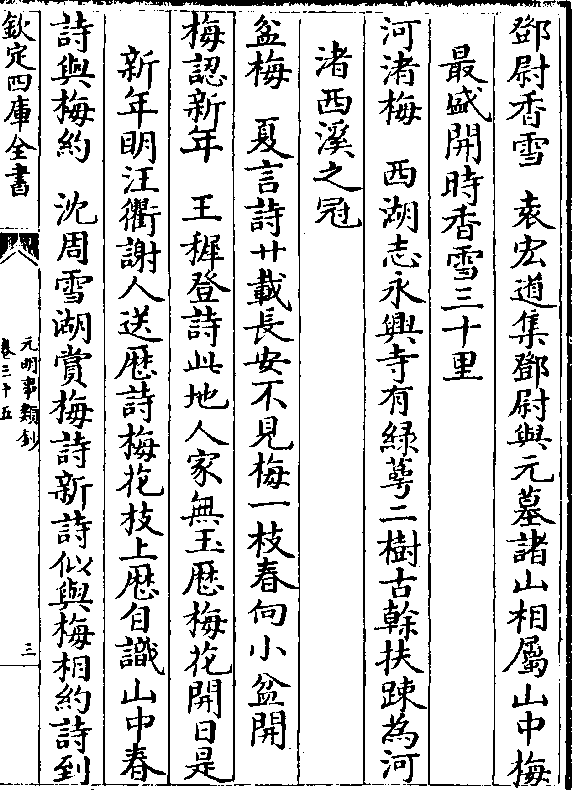 鄧尉香雪　袁宏道集鄧尉與元墓諸山相屬山中梅
最盛開時香雪三十里
河渚梅　西湖志永興寺有綠萼二樹古榦扶踈為河
渚西溪之冠
盆梅　夏言詩廿載長安不見梅一枝春向小盆開
梅認新年　王穉登詩此地人家無玉厯梅花開日是
新年明汪衢謝人送厯詩梅花枝上厯自識山中春
詩與梅約　沈周雪湖賞梅詩新詩似與梅相約詩到
欽定四庫全書
元明事類鈔
卷三十五
三